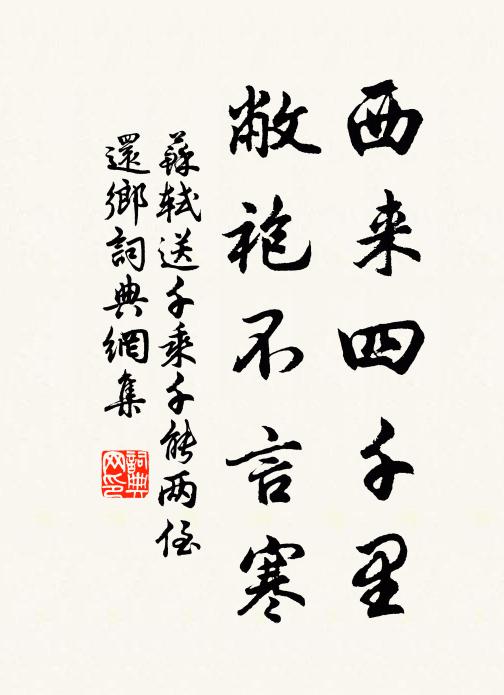 西来四千里
敝袍不言寒
蘇軾送千乘千能两侄
還鄉詞典網集
詞典
网印